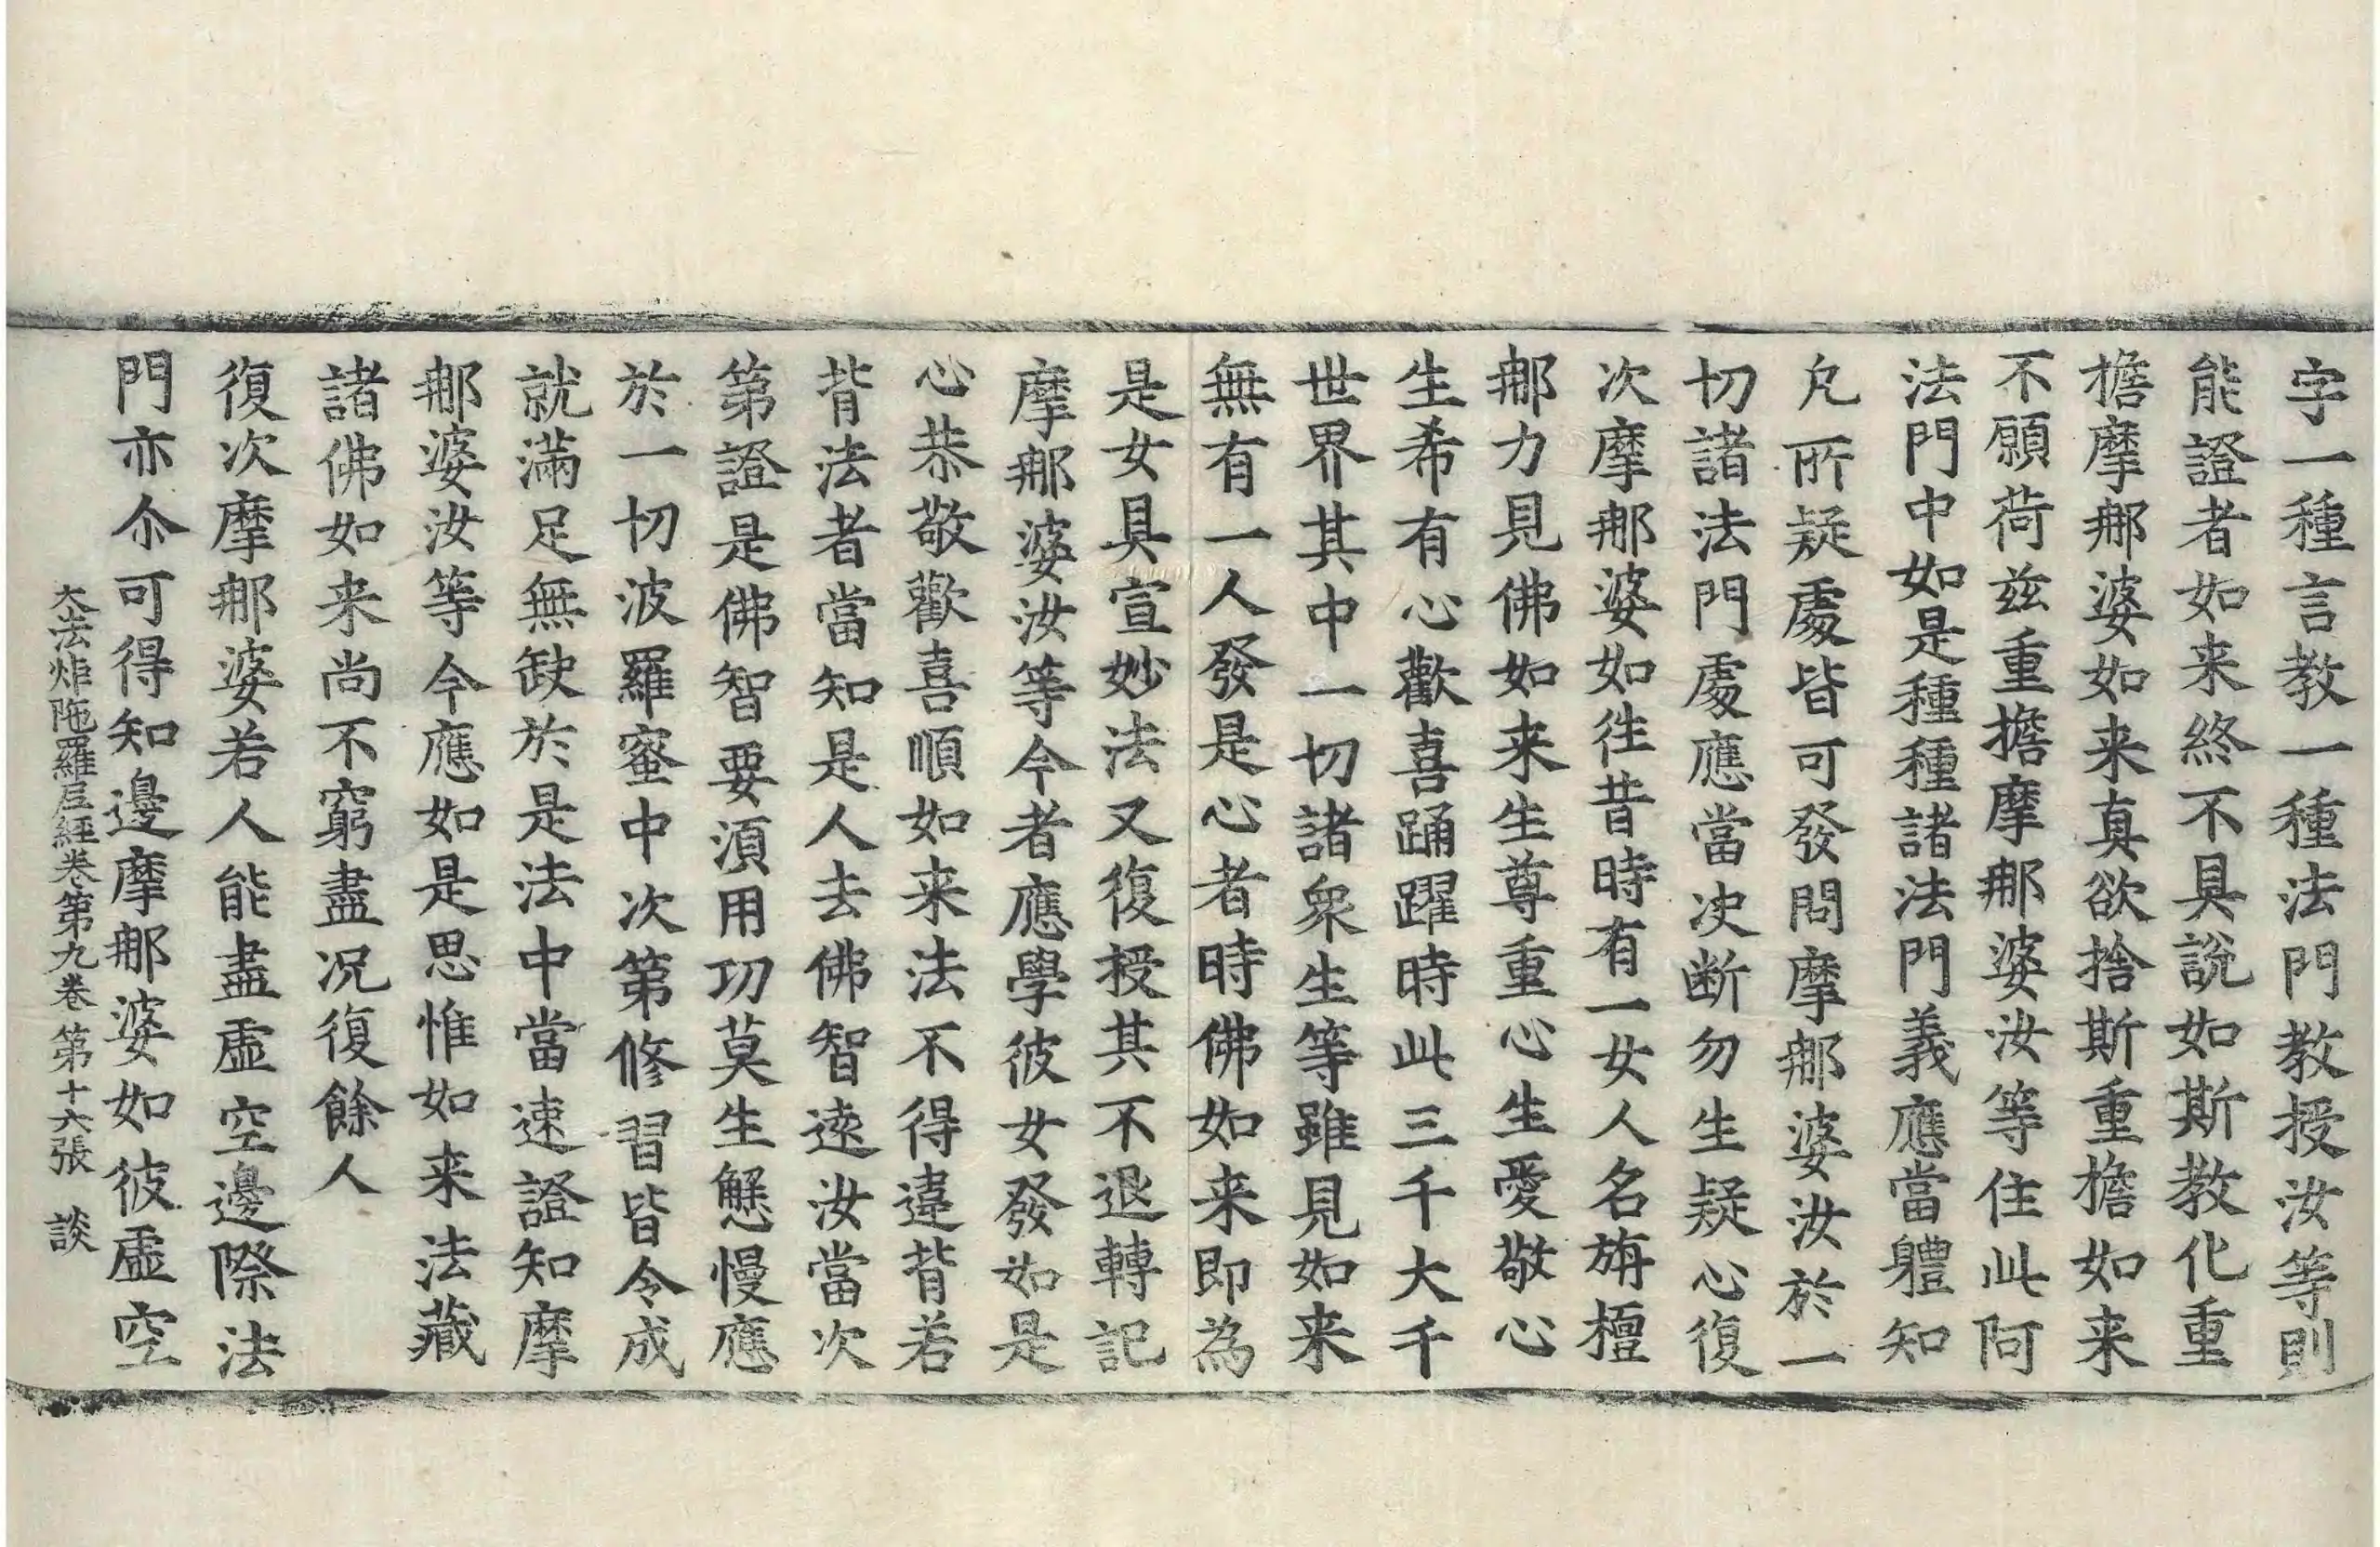 字一種言教一種法門教授汝等則
能證者如来終不具說如斯教化重
擔摩那婆如来真欲捨斯重擔如来
不願荷兹重擔摩那婆汝等住此阿
法門中如是種種諸法門義應當體知
凡所疑處皆可發問摩那婆汝於一
切諸法門處應當决断勿生疑心復
次摩那婆如往昔時有一女人名旃檀
那力見佛如来生尊重心生愛敬心
生希有心歡喜踊躍時此三千大千
世界其中一切諸衆生等雖見如来
無有一人發是心者時佛如来即為
是女具宣妙法又復授其不退轉記
摩那婆汝等今者應學彼女發如是
心恭敬歡喜順如来法不得違背若
背法者當知是人去佛智遠汝當次
第證是佛智要湏用功莫生懈慢應
於一切波羅蜜中次第修習皆令成
就滿足無缺於是法中當速證知摩
那婆汝等今應如是思惟如来法藏
諸佛如来尚不窮盡况復餘人
復次摩那婆若人能盡虛空邊際法
門亦尒可得知邊摩那婆如彼虛空
大法炬陁羅尼經卷第九卷 第十六張 談